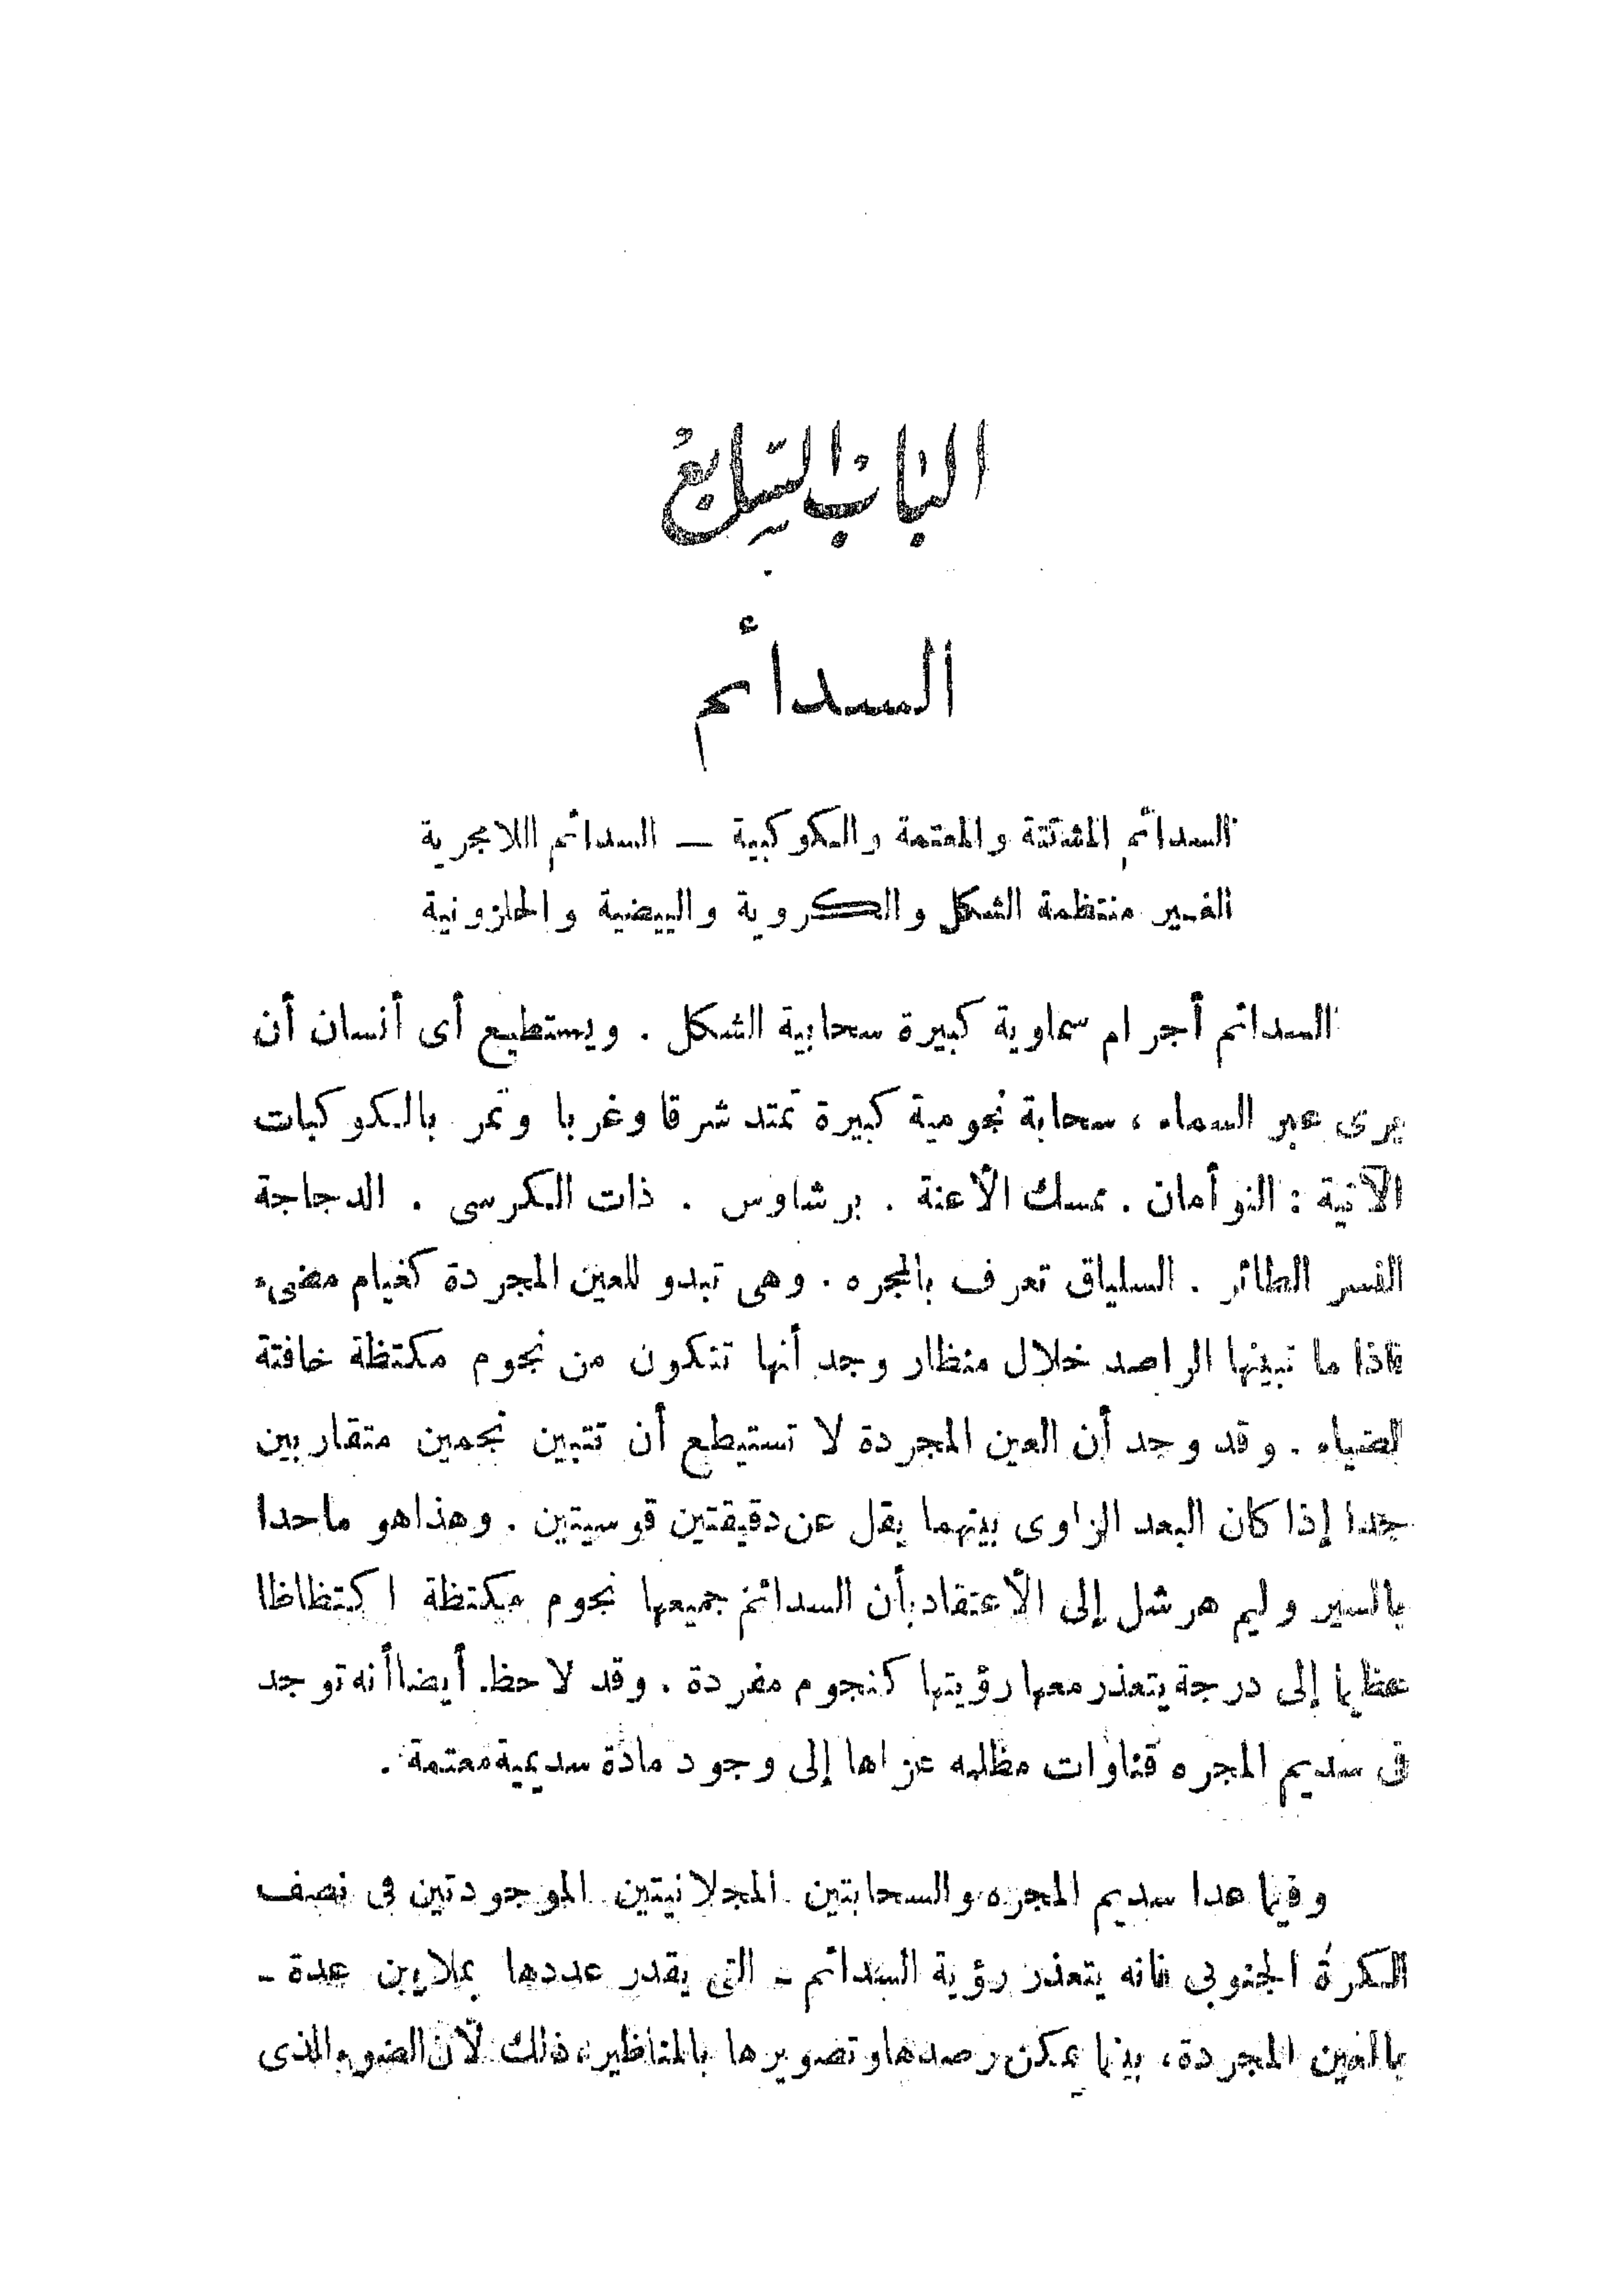 الباب السابع
السدائم
السدائم المشتتة والمعتمة والكوكبية — السدائم اللامجرية
الغير منتظمة الشكل والكروية والبيضية والحلزونية
السدائم أجرام سماوية كبيرة سحابية الشكل . ويستطيع أى أنسان أن
يرى عبر السماء ، سحابة نجومية كبيرة تمتد شرقا وغربا وتمر بالكوكبات
الآتية : التوأمان . ممسك الأعنة . برشاوس . ذات الكرسى . الدجاجة
النسر الطائر . السلياق تعرف بالمجره . وهى تبدو للعين المجردة كغيام مضىء
فاذا ما تبينها الراصد خلال منظار وجد أنها تتكون من نجوم مكتظة خافتة
الضياء . وقد وجد أن العين المجردة لا تستيطع أن تتبين نجمين متقاربين
جدا إذا كان البعد الزاوى بينهما يقل عن دقيقتين قوسيتين . وهذا هو ما حدا
بالسير وليم هرشل إلى الأعتقاد بأن السدائم جميعها نجوم مكتظة اكتظاظا
عظيما إلى درجة يتعذر معها رؤيتها كنجوم مفردة . وقد لاحظ أيضا أنه توجد
فى سديم المجره قناوات مظلمه عزاها إلى وجود مادة سديمية معتمة .
وفيما عدا سديم المجره والسحابتين المجلانيتين الموجودتين فى نصف
الكرة الجنوبى فانه يتعذر رؤية السدائم - التى يقدر عددها بملايين عدة -
بالعين المجردة ، بينما يمكن رصدها وتصويرها بالمناظير ، ذلك لأن الضوء الذى